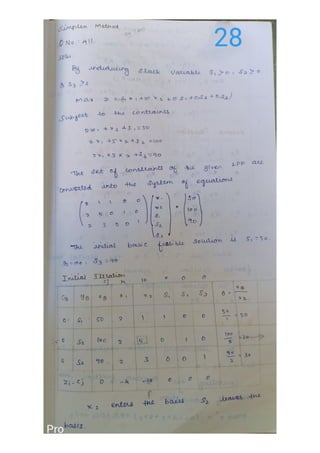 Simplex Method
28
Q No: A11
Soln:
By introducing slack variable S₁ ≥ 0, S₂ ≥ 0
& S₃ ≥
Max Z = 4x₁ + 10x₂ + 0S₁ + 0S₂ + 0S₃
Subject to the constraints
2x₁ + x₂ + S₁ = 50
2x₁ + 5x₂ + S₂ = 100
2x₁ + 3x₂ + S₃ = 90
The set of constraints of the given LPP are
converted into the system of equations
2 1 1 0 0 x₁ 50
2 5 0 1 0 x₂ = 100
2 3 0 0 1 S₁ 90
S₂
S₃
The initial basic feasible solution is S₁ = 50,
S₃ = 90
Initial Iteration
Cj 4 10 0 0 0
CB YB XB x₁ x₂ S₁ S₂ S₃ θ = XB/x₂
0 S₁ 50 2 1 1 0 0 50/1 = 50
0 S₂ 100 2 5 0 1 0 100/5 = 20
0 S₃ 90 2 3 0 0 1 = 30
Zj - Cj 0 -4 -10 0 0 0
x₂ enters the basis S₂ leaves the
basis.
Pro